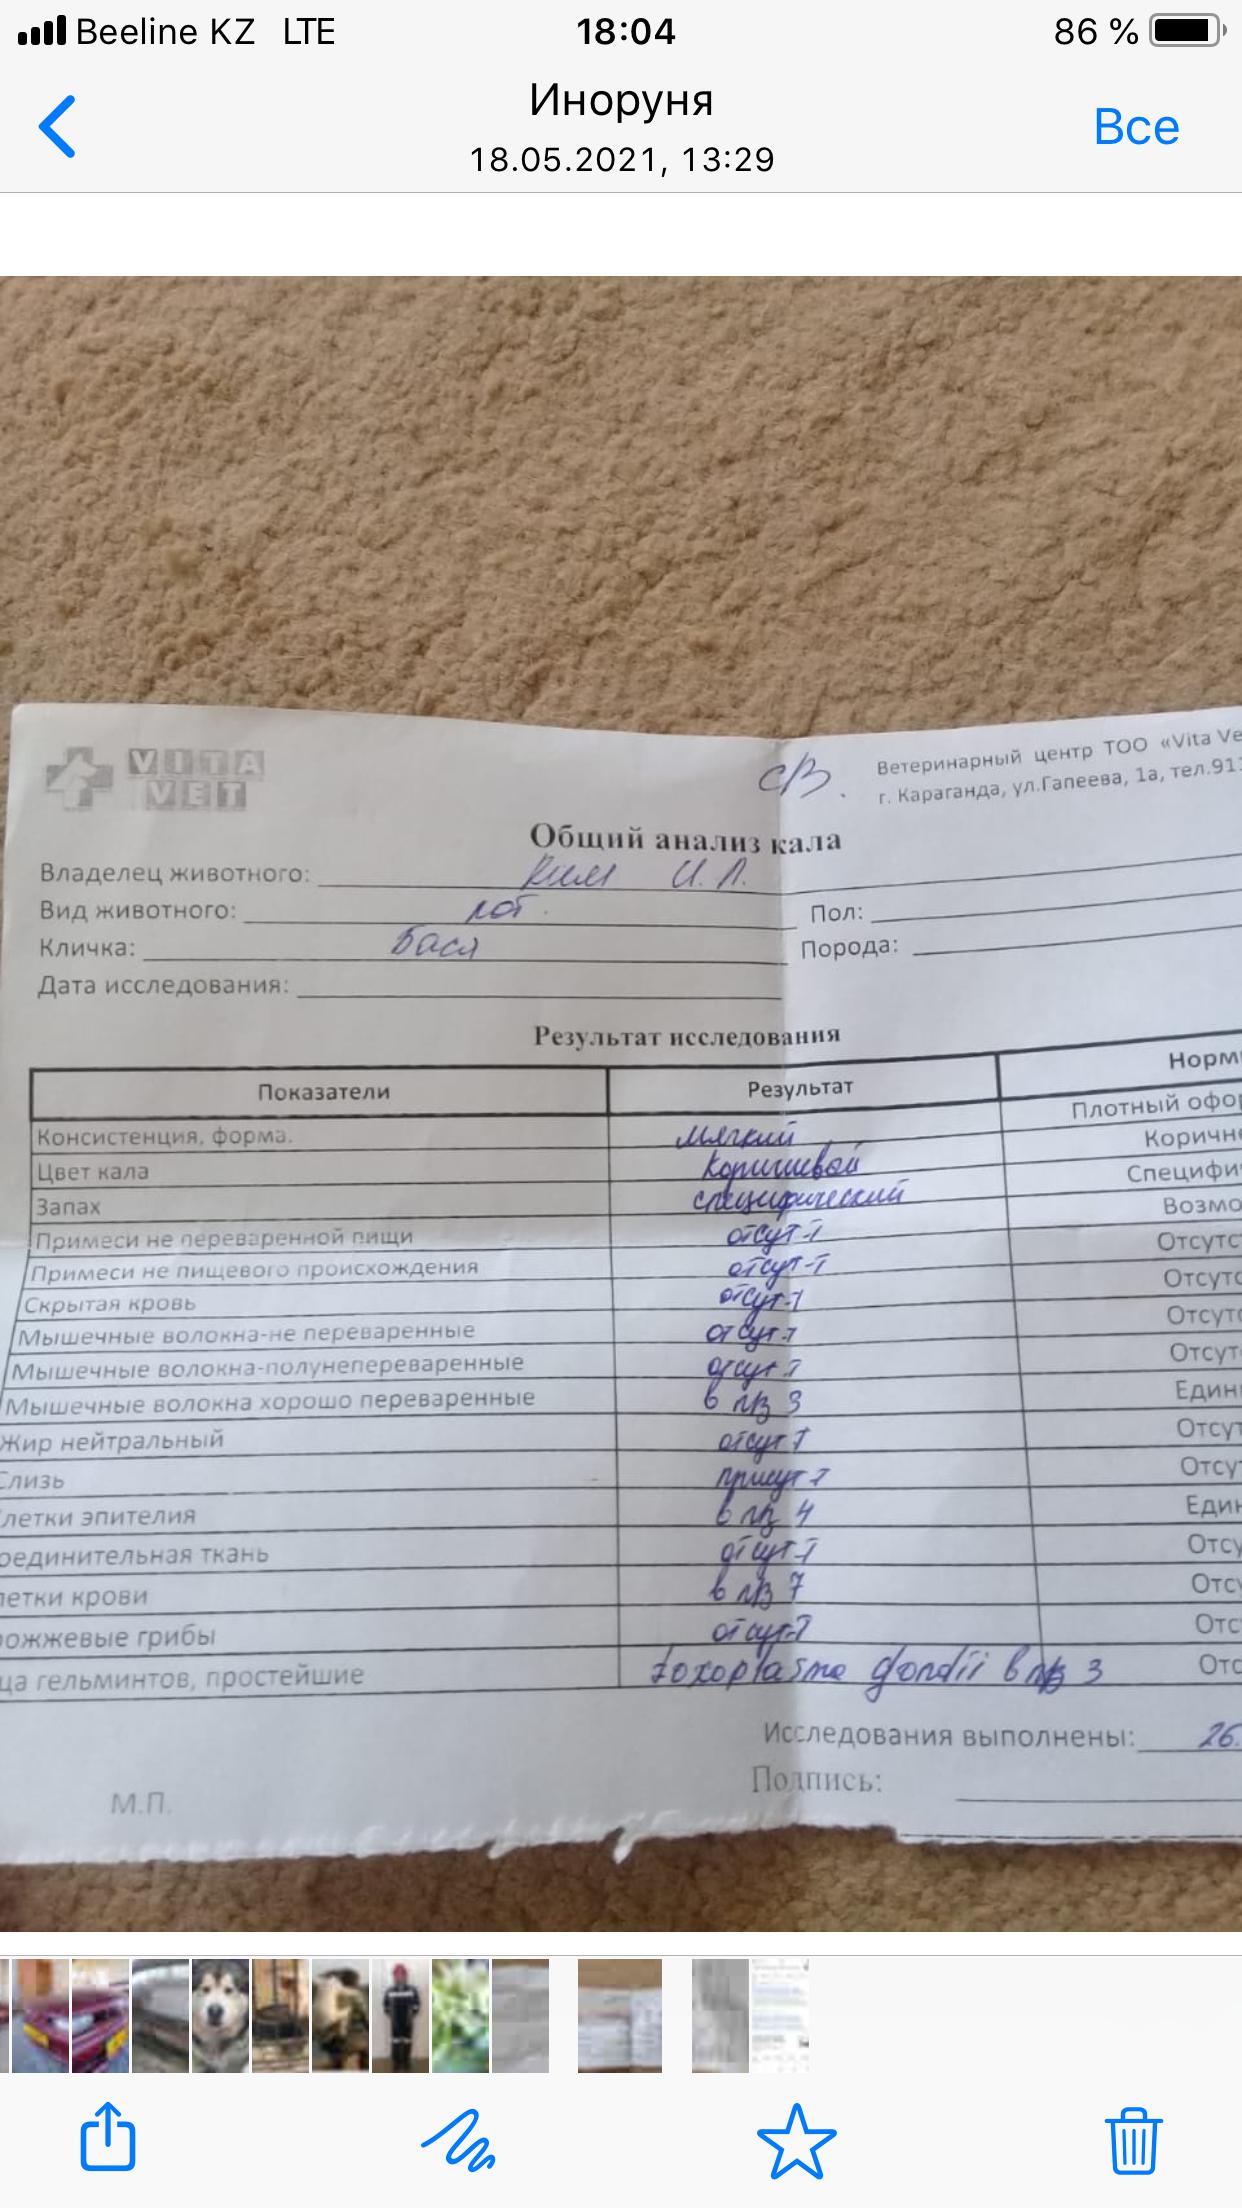 Beeline KZ LTE 18:04 86 %
Иноруня
18.05.2021, 13:29
Все
VITA
VET
с/з.
Ветеринарный центр ТОО «Vita Ve
г. Караганда, ул.Гапеева, 1а, тел.911
Общий анализ кала
Владелец животного: Ким И. Л.
Вид животного: кот. Пол:
Кличка: Бася Порода:
Дата исследования:
Результат исследования
Показатели Результат Норм
Консистенция, форма. мягкий Плотный офор
Цвет кала коричневой Коричне
Запах специфический Специфи
Примеси не переваренной пищи отсут-т Возмо
Примеси не пищевого происхождения отсут-т Отсутс
Скрытая кровь отсут-т Отсутс
Мышечные волокна-не переваренные отсут-т Отсутс
Мышечные волокна-полунепереваренные отсут-т Отсутс
Мышечные волокна хорошо переваренные в п/з 3 Един
Жир нейтральный отсут-т Отсут
Слизь присут-т Отсу
летки эпителия в п/з 4 Един
оединительная ткань отсут-т Отсу
летки крови в п/з 7 Отсу
рожжевые грибы отсут-т Отс
ца гельминтов, простейшие toxoplasma gondii в п/з 3 Отс
Исследования выполнены: 26.
Подпись:
М.П.